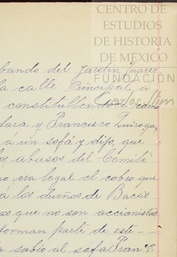 CENTRO DE
ESTUDIOS
DE HISTORIA
DE MÉXICO
FUNDACIÓN
Carlos Slim
bando del jardín Juárez
la calle Principal, á
constabulario como
dara y Francisco Quiroga,
á un sofá y dijo que
los abusos del Comité
no era legal el cobro que
á los dueños de
os que no son accionistas
forman parte de este
subio al sofá Fran